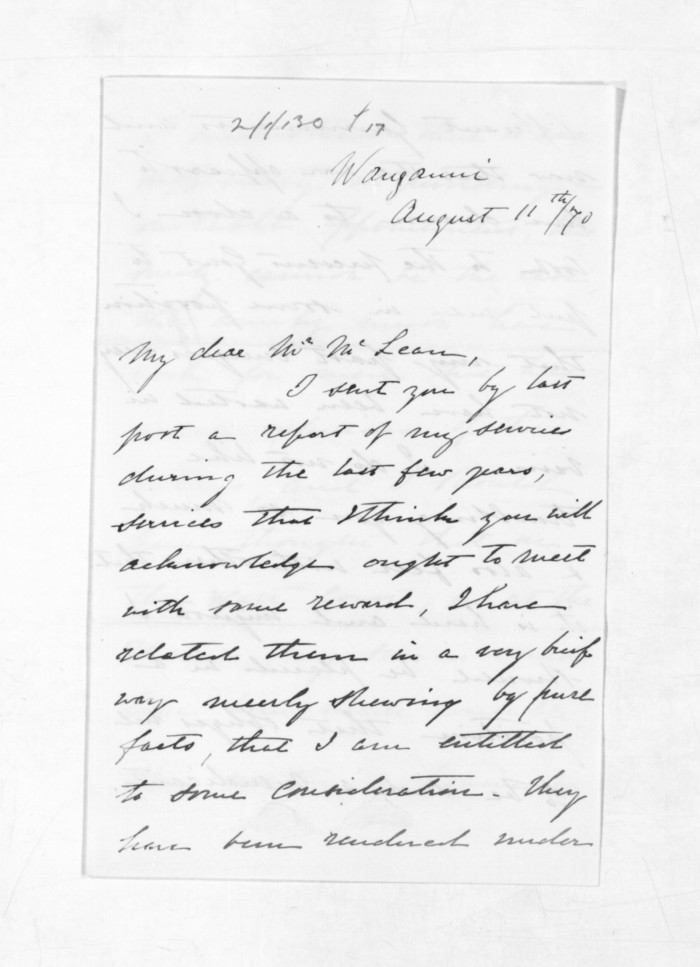 2/1/130 /17
Wanganui
August 11th/70
My dear Mr McLean,
I sent you by last
post a report of my services
during the last few years,
services that I think you will
acknowledge ought to meet
with some reward, I have
related them in a very brief
way meerly shewing by pure
facts, that I am entitled
to some consideration - They
have been rendered under